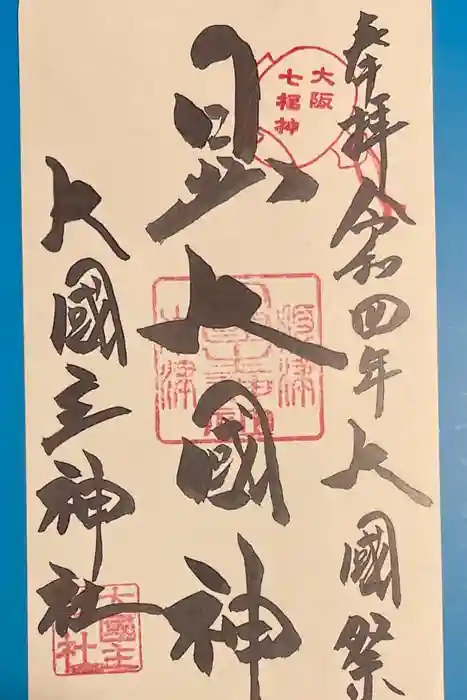 奉拝 令和四年 大國祭
大阪
七福神
日出大國神
大國主神社
大國主
神社